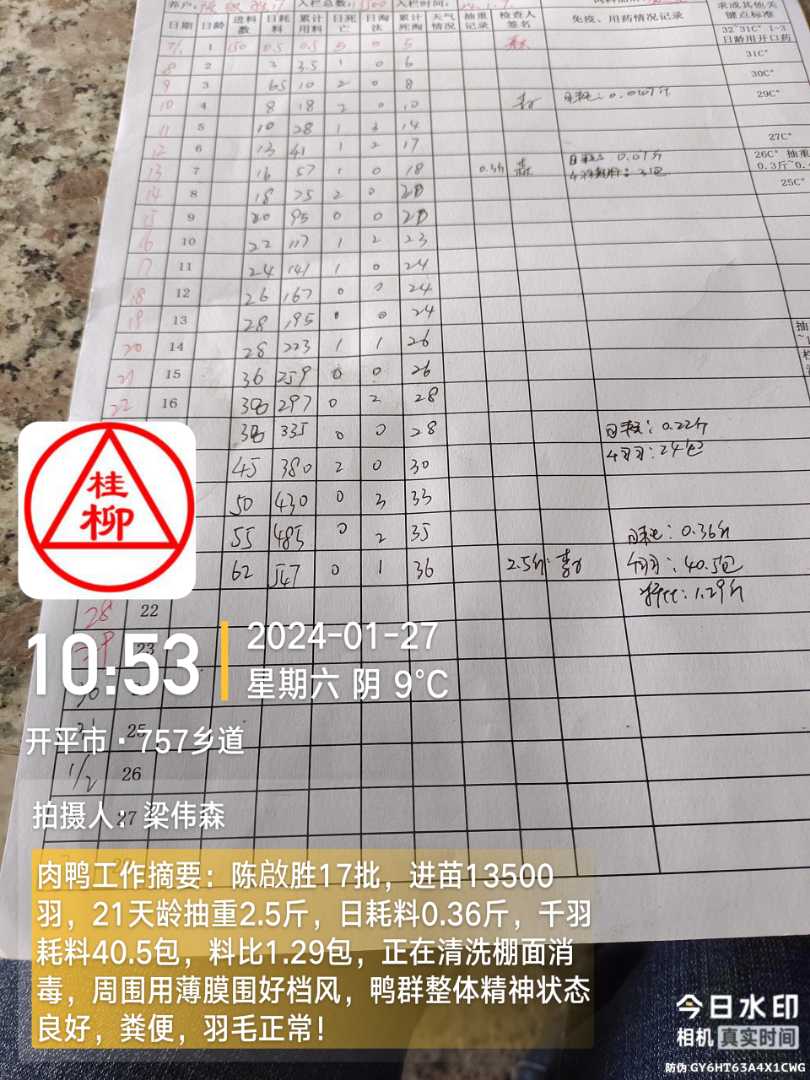 入栏总数: 入栏时间:
求或其他关键点标准
日期 日龄 进料数 日耗料 累计用料 日死亡 日淘汰 累计死淘 天气情况 抽重记录 检查人签名 免疫、用药情况记录
32~31C° 1-3日龄用开口药
1 150 0.5 0.5 5 0 5
8 2 3 3.5 1 0 6 31C°
9 3 6.5 10 2 0 8 30C°
10 4 8 18 2 0 10 29C°
11 5 10 28 1 3 14
12 6 13 41 1 2 17 27C°
13 7 16 57 1 0 18 0.3斤 森 0.07斤 26C° 抽重
14 8 18 75 2 0 20 25C°
15 9 20 95 0 0 20
16 10 22 117 1 2 23
17 11 24 141 1 0 24
18 12 26 167 0 0 24
19 13 28 195 0 0 24
20 14 28 223 1 1 26
21 15 36 259 0 0 26
22 16 38 297 0 2 28
38 335 0 0 28 日耗: 0.22斤
45 380 2 0 30 千羽: 24包
50 430 0 3 33
55 485 0 2 35 日耗: 0.36斤
62 547 0 1 36 2.5斤 千羽: 40.5包
料比: 1.29斤
28 22
23
25
1/2 26
27
桂柳
10:53
2024-01-27
星期六 阴 9°C
开平市·757乡道
拍摄人: 梁伟森
肉鸭工作摘要: 陈啟胜17批，进苗13500
羽，21天龄抽重2.5斤，日耗料0.36斤，千羽
耗料40.5包，料比1.29包，正在清洗棚面消
毒，周围用薄膜围好档风，鸭群整体精神状态
良好，粪便，羽毛正常！
今日水印
相机 真实时间
防伪 GY6HT63A4X1CWG